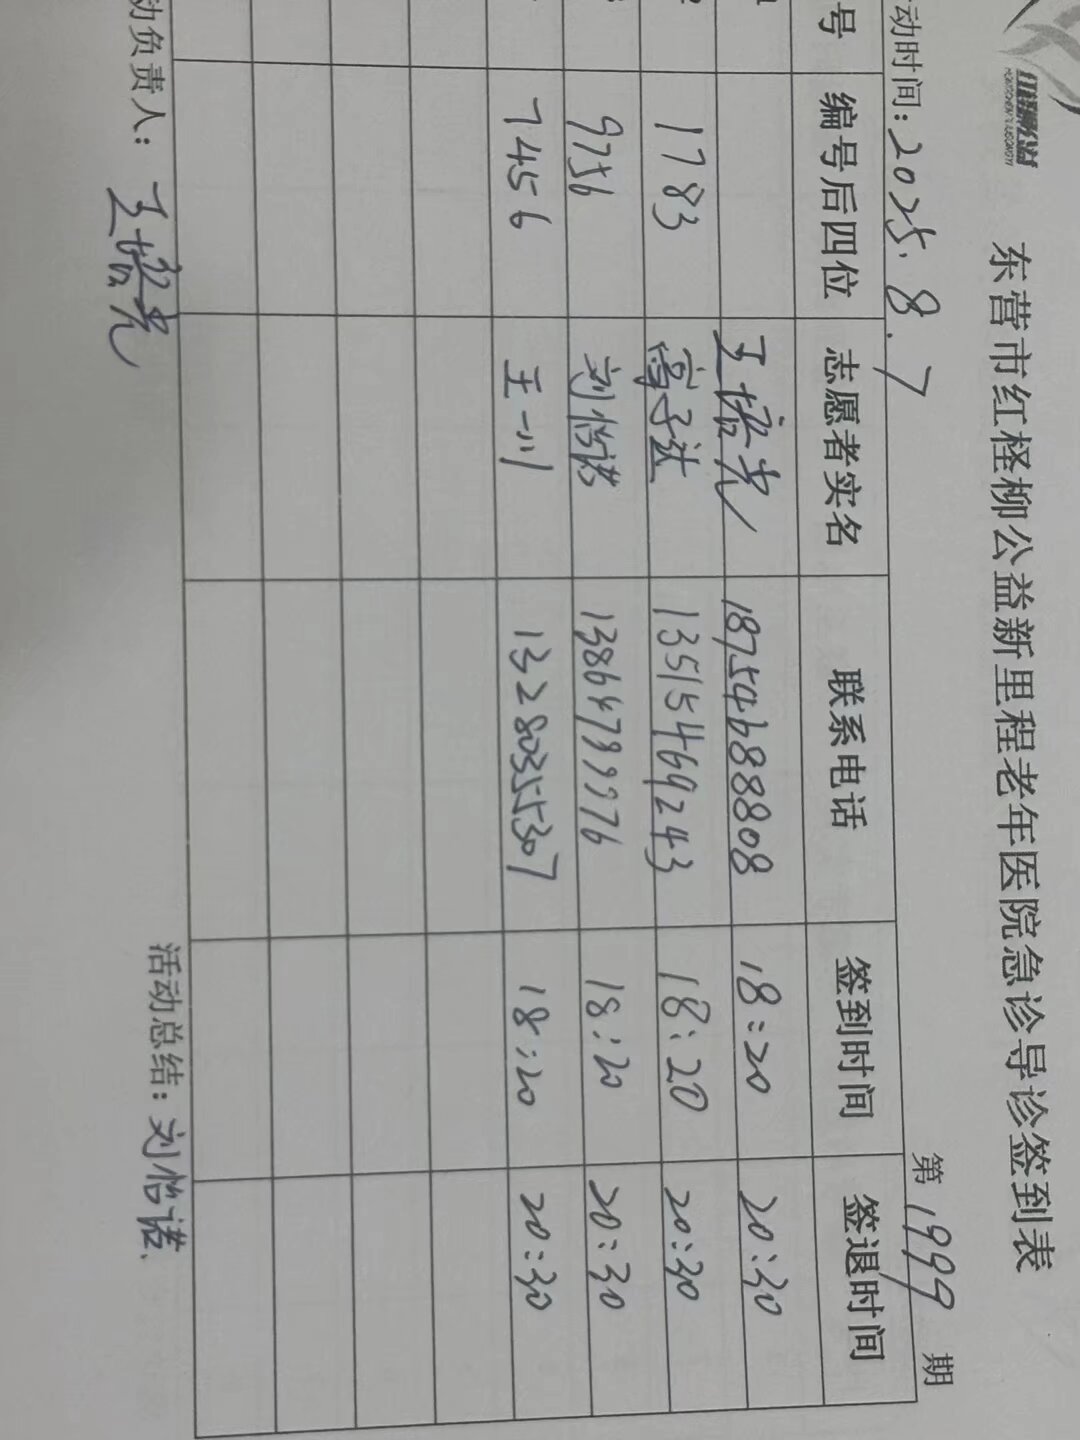 红柽柳公益
东营市红柽柳公益新里程老年医院急诊导诊签到表
动时间：2025.8.7 第1999期
号 编号后四位 志愿者实名 联系电话 签到时间 签退时间
王培光 18754688808 18:20 20:30
1783 13515469243 18:20 20:30
9756 刘怡诺 18:20 20:30
7456 王一川 13280355307 18:20 20:30
动负责人：王培光 活动总结：刘怡诺